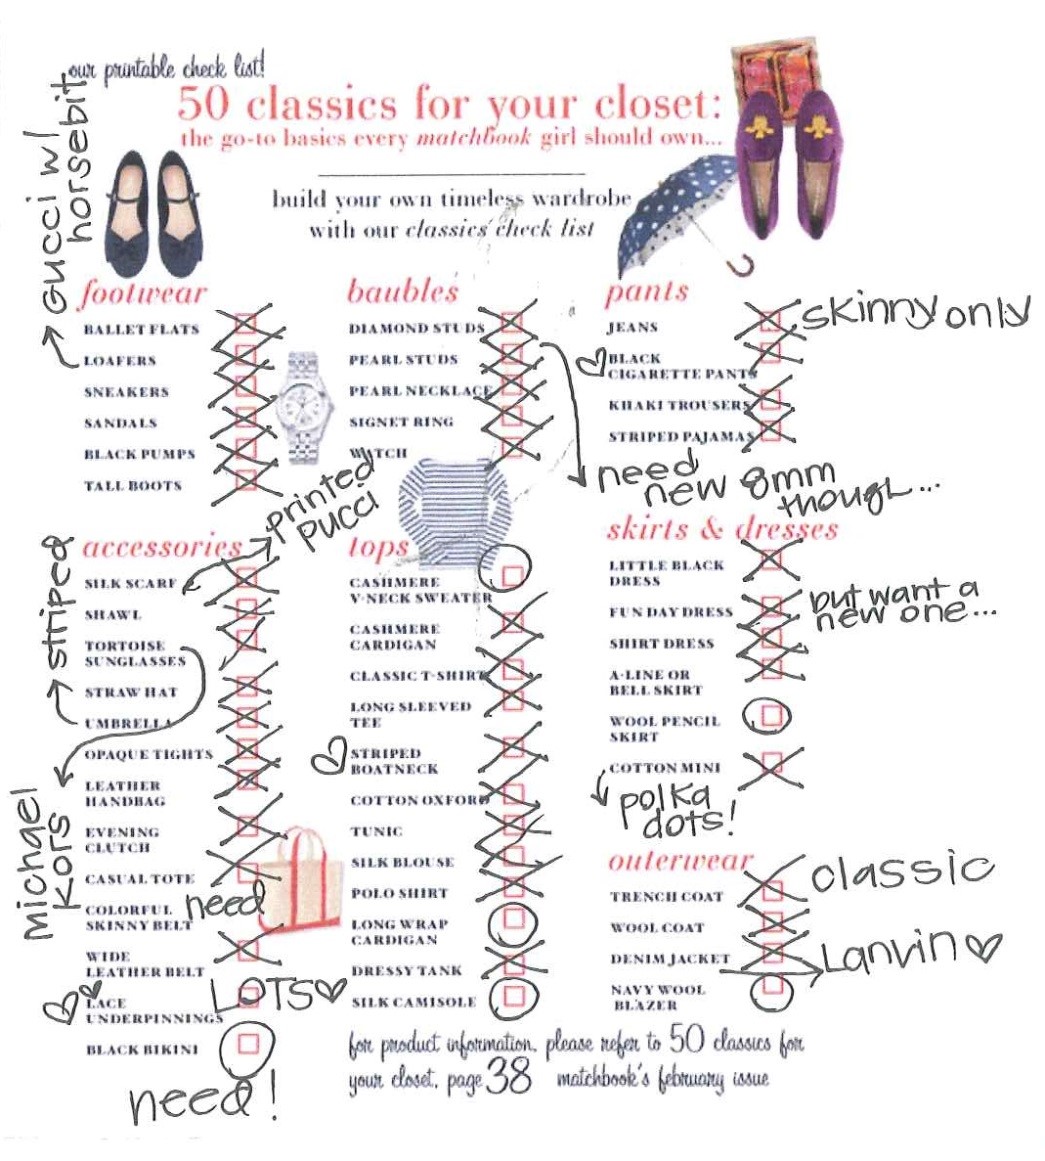 our printable check list!
50 classics for your closet:
the go-to basics every matchbook girl should own...
build your own timeless wardrobe
with our classics check list
Gucci w/
horsebit
footwear
BALLET FLATS
LOAFERS
SNEAKERS
SANDALS
BLACK PUMPS
TALL BOOTS
baubles
DIAMOND STUDS
PEARL STUDS
PEARL NECKLACE
SIGNET RING
WATCH
pants
JEANS
skinny only
BLACK
CIGARETTE PANTS
KHAKI TROUSERS
STRIPED PAJAMAS
need
new 8mm
though...
printed
pucci
accessories
SILK SCARF
SHAWL
TORTOISE
SUNGLASSES
STRAW HAT
UMBRELLA
OPAQUE TIGHTS
LEATHER
HANDBAG
EVENING
CLUTCH
CASUAL TOTE
COLORFUL
SKINNY BELT
need
WIDE
LEATHER BELT
LACE
UNDERPINNINGS
LOTS
BLACK BIKINI
need!
striped
michael
kors
tops
CASHMERE
V-NECK SWEATER
CASHMERE
CARDIGAN
CLASSIC T-SHIRT
LONG SLEEVED
TEE
STRIPED
BOATNECK
COTTON OXFORD
TUNIC
SILK BLOUSE
POLO SHIRT
LONG WRAP
CARDIGAN
DRESSY TANK
SILK CAMISOLE
skirts & dresses
LITTLE BLACK
DRESS
FUN DAY DRESS
but want a
new one...
SHIRT DRESS
A-LINE OR
BELL SKIRT
WOOL PENCIL
SKIRT
COTTON MINI
polka
dots!
outerwear
TRENCH COAT
classic
WOOL COAT
DENIM JACKET
Lanvin
NAVY WOOL
BLAZER
for product information, please refer to 50 classics for
your closet, page 38 matchbook's february issue